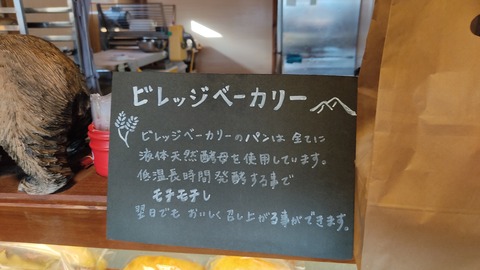 ビレッジベーカリー
ビレッジベーカリーのパンは全てに
液体天然酵母を使用しています。
低温長時間発酵する事で
モチモチし
翌日でもおいしく召し上がる事ができます。